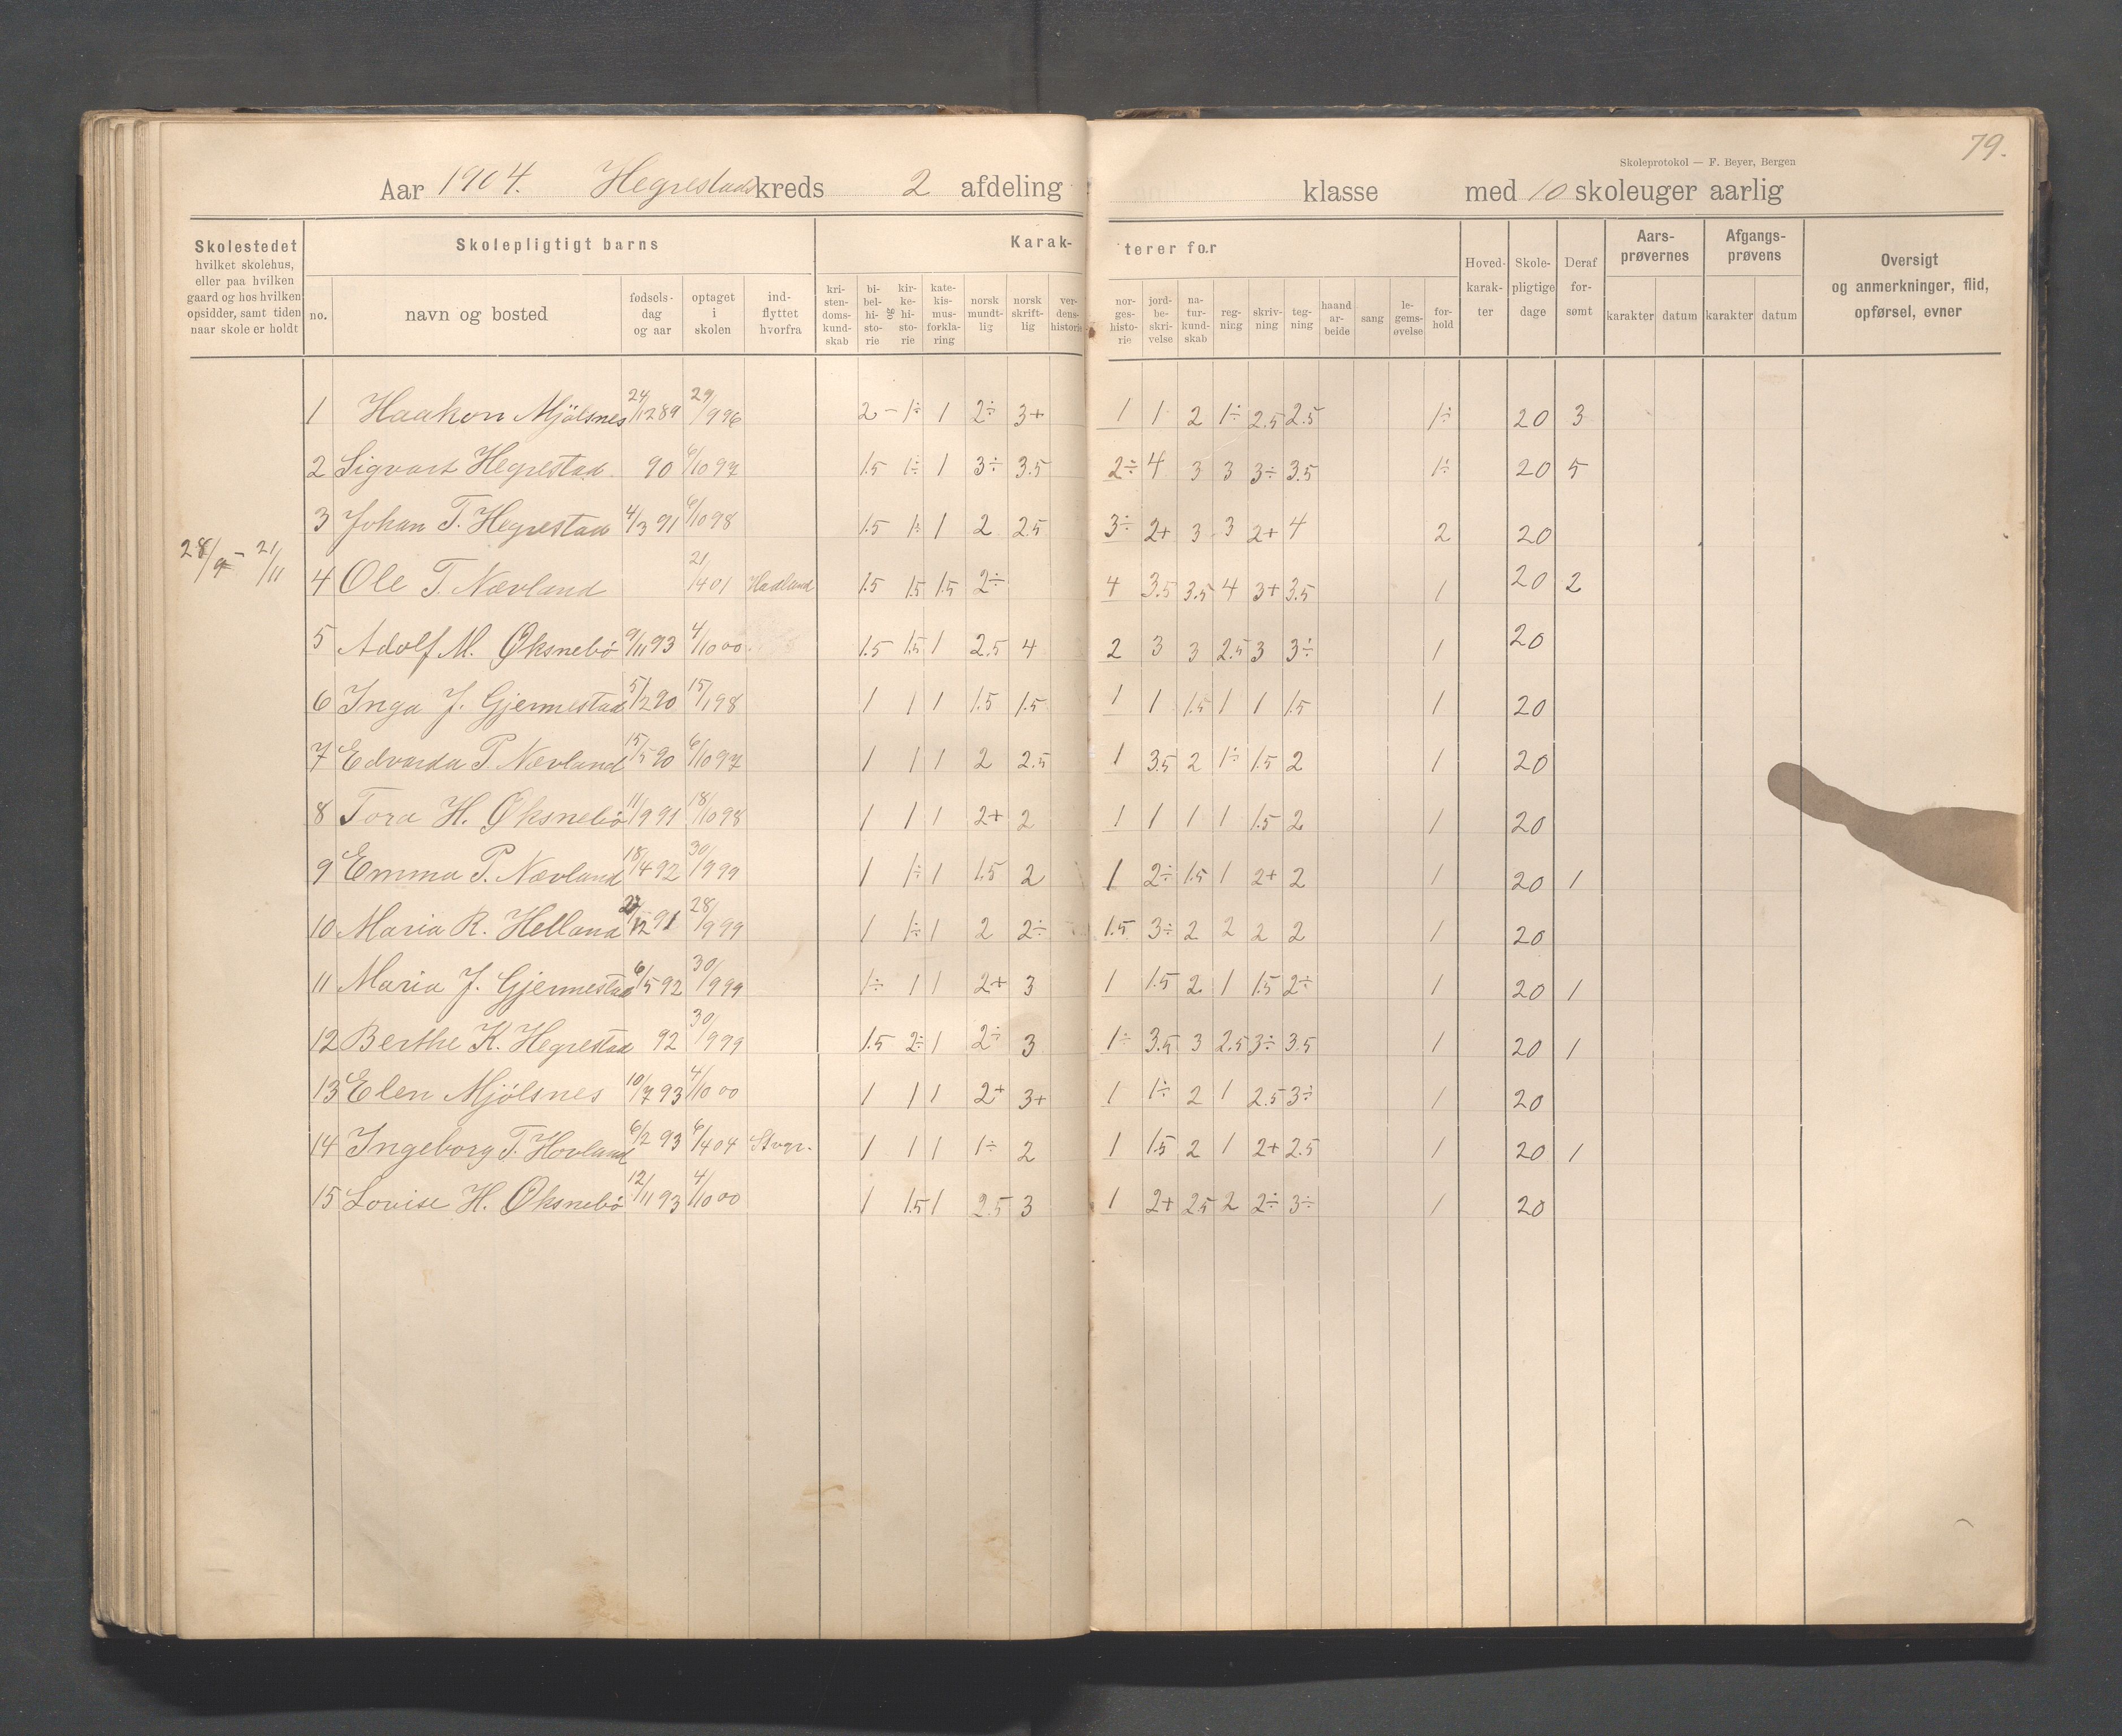 79.
Skoleprotokol — F. Beyer, Bergen
Aar 1904. Hegrestads kreds 2 afdeling klasse med 10 skoleuger aarlig
Skolestedet hvilket skolehus, eller paa hvilken gaard og hos hvilken opsidder, samt tiden naar skole er holdt
Skolepligtigt barns
Karakterer for
no. navn og bosted fødselsdag og aar optaget i skolen indflyttet hvorfra
kristendomskundskab bibelhistorie og kirkehistorie katekismusforklaring norsk mundtlig norsk skriftlig verdenshistorie
norgeshistorie jordbeskrivelse naturkundskab regning skrivning tegning haandarbeide sang legemsøvelse forhold
Hovedkarakter Skolepligtige dage Deraf forsømt
Aarsprøvernes karakter datum
Afgangsprøvens karakter datum
Oversigt og anmerkninger, flid, opførsel, evner
28/9 - 21/11
1 Haakon Mjølsnes 24/12 89 29/9 96 2 - 1÷ 1 2÷ 3+ 1 1 2 1÷ 2.5 2.5 1÷ 20 3
2 Sigvart Hegrestad 90 6/10 97 1.5 1÷ 1 3÷ 3.5 2÷ 4 3 3 3÷ 3.5 1÷ 20 5
3 Johan T. Hegrestad 4/3 91 6/10 98 1.5 1÷ 1 2 2.5 3÷ 2+ 3 3 2+ 4 2 20
4 Ole T. Nævland 21/4 01 Hadland 1.5 1.5 1.5 2÷ 4 3.5 3.5 4 3+ 3.5 1 20 2
5 Adolf M. Øksnebø 9/11 93 4/10 00 1.5 1.5 1 2.5 4 2 3 3 2.5 3 3÷ 1 20
6 Inga J. Gjermestad 5/2 90 15/1 98 1 1 1 1.5 1.5 1 1 1.5 1 1 1.5 1 20
7 Edvarda P. Nævland 15/5 90 6/10 97 1 1 1 2 2.5 1 3.5 2 1÷ 1.5 2 1 20
8 Tora H. Øksnebø 11/9 91 18/10 98 1 1 1 2+ 2 1 1 1 1 1.5 2 1 20
9 Emma P. Nævland 18/4 92 30/9 99 1 1÷ 1 1.5 2 1 2÷ 1.5 1 2+ 2 1 20 1
10 Maria R. Helland 12 91 28/9 99 1 1÷ 1 2 2÷ 1.5 3÷ 2 2 2 2 1 20
11 Maria J. Gjermestad 6/5 92 30/9 99 1÷ 1 1 2+ 3 1 1.5 2 1 1.5 2÷ 1 20 1
12 Berthe K. Hegrestad 92 30/9 99 1.5 2÷ 1 2÷ 3 1÷ 3.5 3 2.5 3÷ 3.5 1 20 1
13 Elen Mjølsnes 10/7 93 4/10 00 1 1 1 2+ 3+ 1 1÷ 2 1 2.5 3÷ 1 20
14 Ingeborg T. Hovland 6/2 93 6/4 04 Stvgr. 1 1 1 1÷ 2 1 1.5 2 1 2+ 2.5 1 20 1
15 Lovise H. Øksnebø 12/11 93 4/10 00 1 1.5 1 2.5 3 1 2+ 2.5 2 2÷ 3÷ 1 20